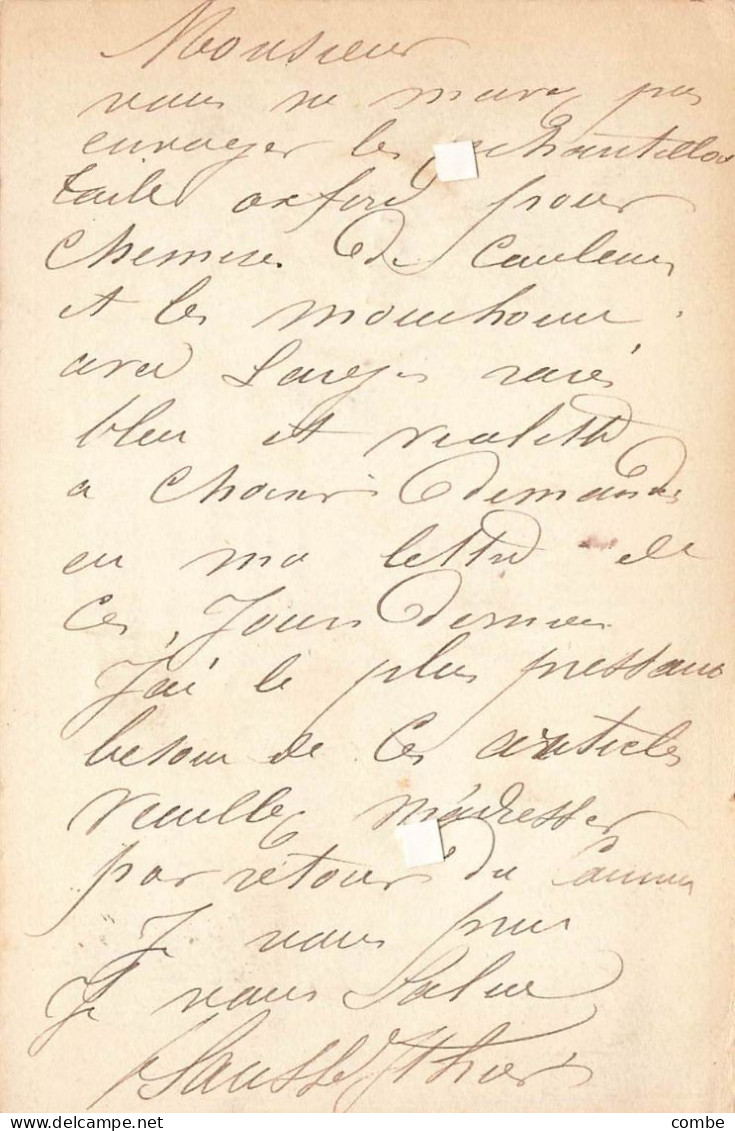 Monsieur
vous ne mavez pas
envoyer les echantillon
toile oxford pour
chemise de couleurs
et les mouchoirs
avec larges raies
bleu et violette
a choisir demandes
en ma lettre de
ces Jours dernier
J'ai le plus pressant
besoin de ces articles
veuillez m'adresser
par retour du Courrier
Je vous prie
Je vous Salue
combe